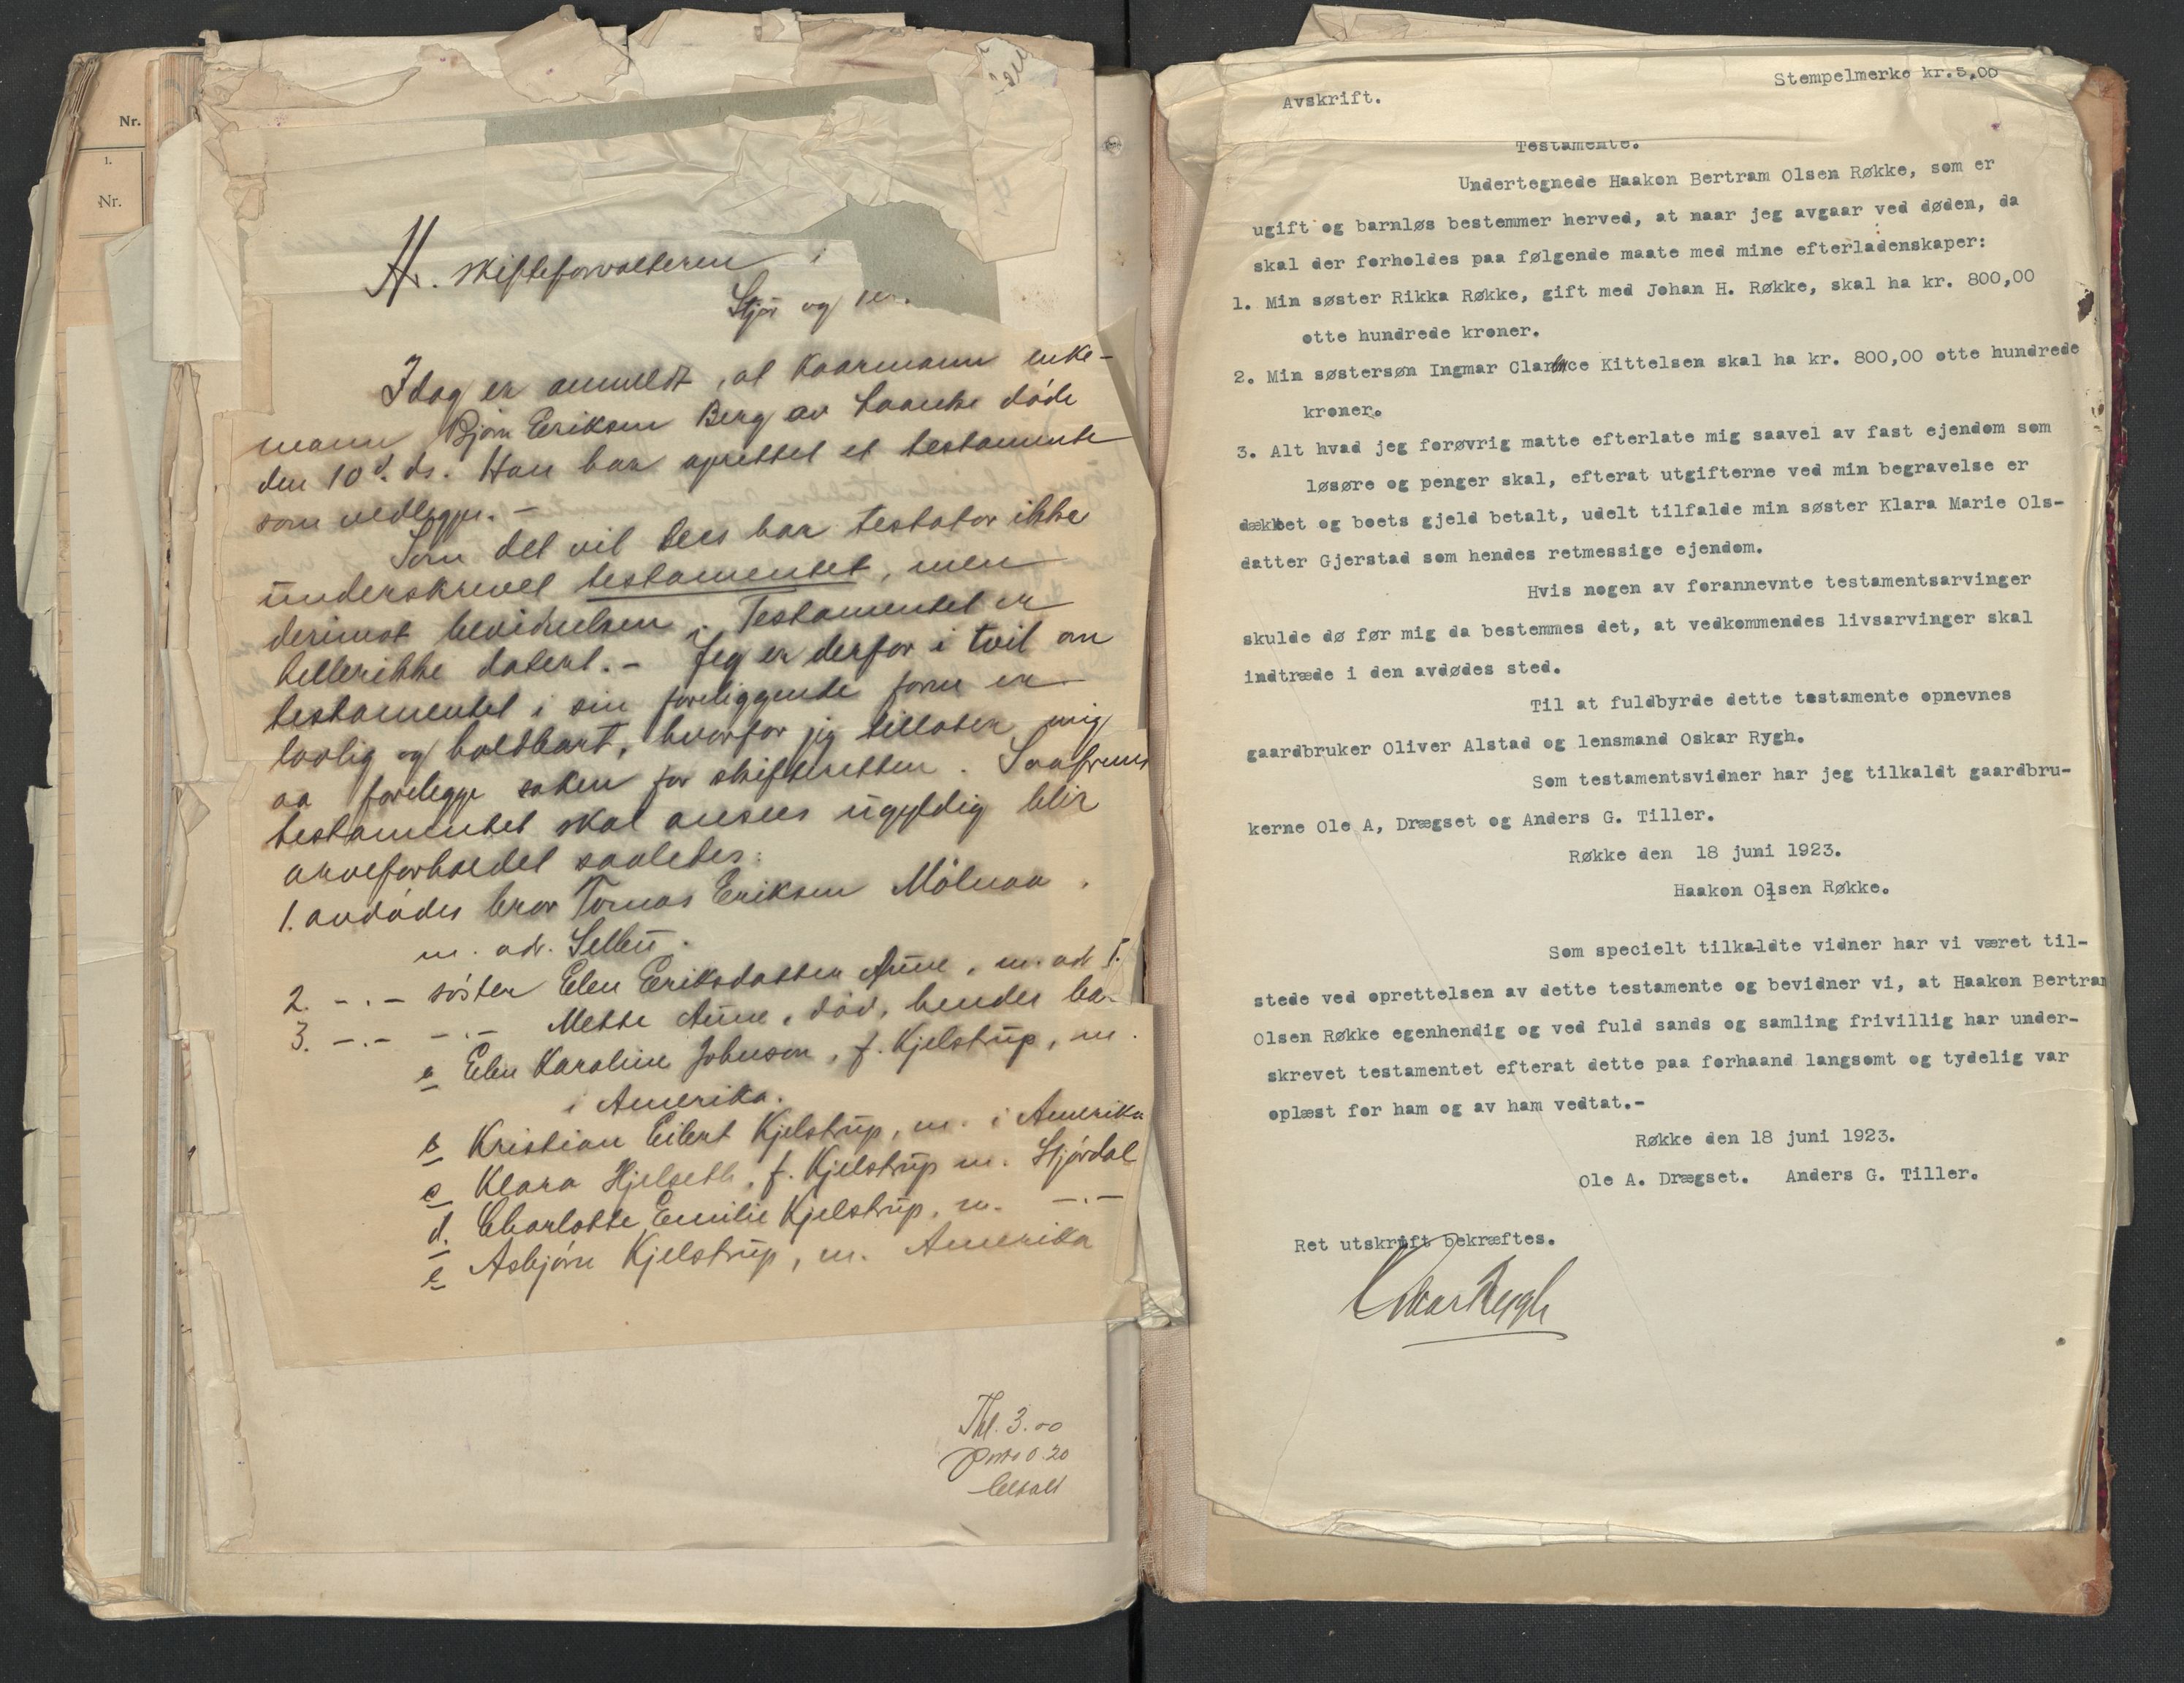 Nr.
1.
Nr.
Hr. skifteforvalteren i
Stjør og
Idag er anmeldt, at kaarmann enke-
mann Bjørn Eriksen Berg av Laanke døde
den 10d. ds. Han har oprettet et testamente
som vedlegges. -
Som det vil sees har testator ikke
underskrevet testamentet, men
derimot bevidnelsen. Testamentet er
hellerikke datert. - Jeg er derfor i tvil om
testamentet i sin foreliggende form er
lovlig og holdbart, hvorfor jeg tillater mig
aa forelegge saken for skifteretten. Saafremt
testamentet skal ansees ugyldig blir
arveforholdet saaledes:
1. avdødes bror Tomas Eriksen Mölnaa,
m. adr. Selbu.
2. -.- søster Elen Eriksdatter Aune, m. adr S.
3. -.- -.- Mette Aune, død, hendes ba-
a Elen Karoline Johnson, f. Kjelstrup, m.
i Amerika.
b Kristian Eilert Kjelstrup, m. i Amerika
c Klara Hjelseth, f. Kjelstrup m. Stjørdal
d. Charlotte Emilie Kjelstrup, m. -.-
e Asbjørn Kjelstrup, m. Amerika
Thl. 3.00
Porto 0.20
betalt
Stempelmerke kr.5,00
Avskrift.
Testamente.
Undertegnede Haakon Bertram Olsen Røkke, som er
ugift og barnløs bestemmer herved, at naar jeg avgaar ved døden, da
skal der forholdes paa følgende maate med mine efterladenskaper:
1. Min søster Rikka Røkke, gift med Johan H. Røkke, skal ha kr. 800,00
otte hundrede kroner.
2. Min søstersøn Ingmar Clarence Kittelsen skal ha kr. 800,00 otte hundrede
kroner.
3. Alt hvad jeg forøvrig matte efterlate mig saavel av fast ejendom som
løsøre og penger skal, efterat utgifterne ved min begravelse er
dækket og boets gjeld betalt, udelt tilfalde min søster Klara Marie Ols-
datter Gjerstad som hendes retmessige ejendom.
Hvis nogen av forannevnte testamentsarvinger
skulde dø før mig da bestemmes det, at vedkommendes livsarvinger skal
indtræde i den avdødes sted.
Til at fuldbyrde dette testamente opnevnes
gaardbruker Oliver Alstad og lensmand Oskar Rygh.
Som testamentsvidner har jeg tilkaldt gaardbru-
kerne Ole A, Drægset og Anders G. Tiller.
Røkke den 18 juni 1923.
Haakon Olsen Røkke.
Som specielt tilkaldte vidner har vi været til-
stede ved oprettelsen av dette testamente og bevidner vi, at Haakon Bertram
Olsen Røkke egenhendig og ved fuld sands og samling frivillig har under-
skrevet testamentet efterat dette paa forhaand langsomt og tydelig var
oplæst for ham og av ham vedtat.-
Røkke den 18 juni 1923.
Ole A. Drægset. Anders G. Tiller.
Ret utskrift bekræftes.
Oskar Rygh